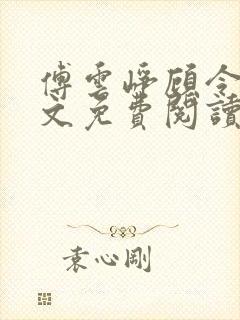 傅雲崢顧令
文免費閱讀
袁心剛